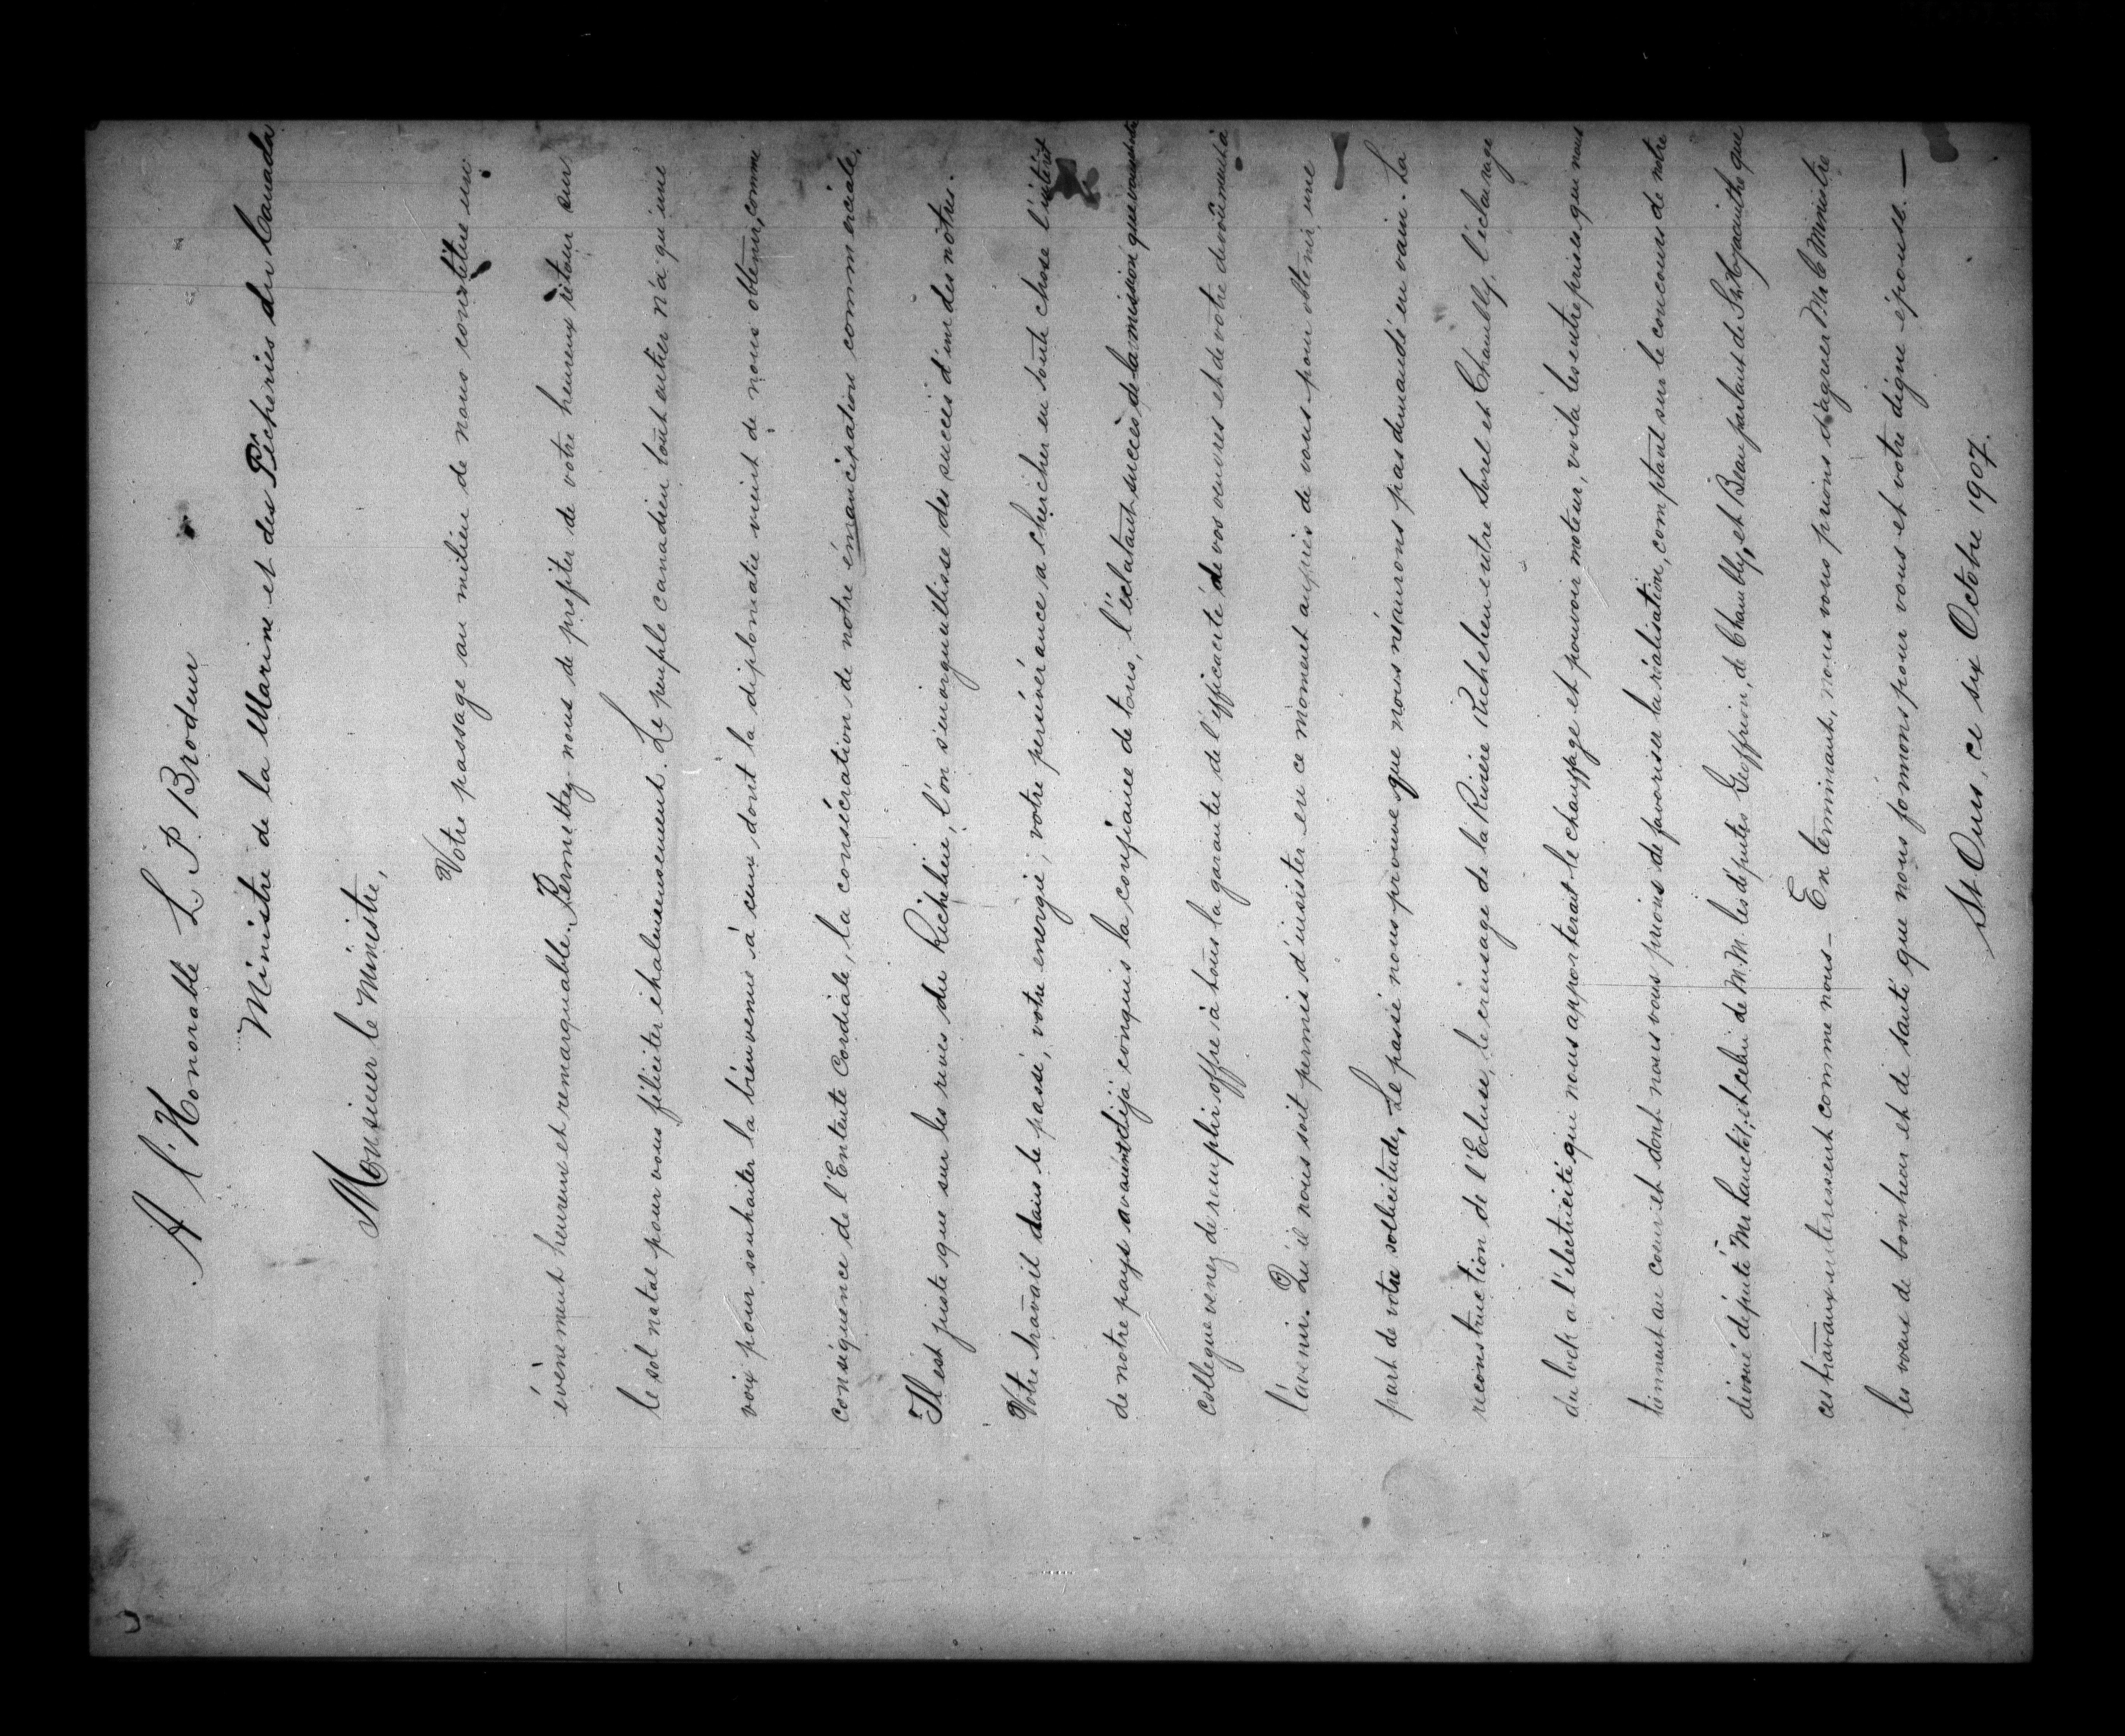 A l'Honorable L. P. Brodeur
Ministre de la Marine et des Pêcheries du Canada
Monsieur le Ministre,
Votre passage au milieu de nous constitue un
évènement heureux et remarquable. Permettez-nous de profiter de votre heureux retour sur
le sol natal pour vous féliciter chaleureusement. Le peuple canadien tout entier n'a qu'une
voix pour souhaiter la bienvenue à ceux, dont la diplomatie vient de nous obtenir, comme
conséquence de l'Entente Cordiale, la consécration de notre émancipation commerciale.
Il est juste que sur les rives du Richelieu, l'on s'enorgueillisse des succès d'un des nôtres.
Votre travail dans le passé, votre energie, votre persévérance a chercher en toute chose l'intérêt
de notre pays avaient déjà conquis la confiance de tous, l'éclatant succès de la mission que vous et votre
collegue venez de remplir offre à tous la garantie de l'efficacité de vos œuvres et de votre dévoûment à
l'avenir. Qu'il nous soit permis d'insister en ce moment auprès de vous pour obtenir une
part de votre sollicitude, Le passé nous prouve que nous n'aurons pas demandé en vain. La
reconstruction de l'Ecluse, le creusage de la Rivière Richelieu entre Sorel et Chambly, l'éclairage
du lock a l'électricité qui nous apporterait le chauffage et pouvoir moteur, voila les entreprises qui nous
tiennent au cœur et dont nous vous prions de favoriser la réalisation, comptant sur le concours de notre
dévoué député Mr Lanctôt, et celui de M.M. les députés Geoffrion, de Chambly, et Beauparlant de St Hyacinthe que
ces travaux interessent comme nous – En terminant, nous vous prions d'agréer Mr le Ministre
les vœux de bonheur et de santé que nous formons pour vous et votre digne épouse. —
St Ours, ce six Octobre 1907.